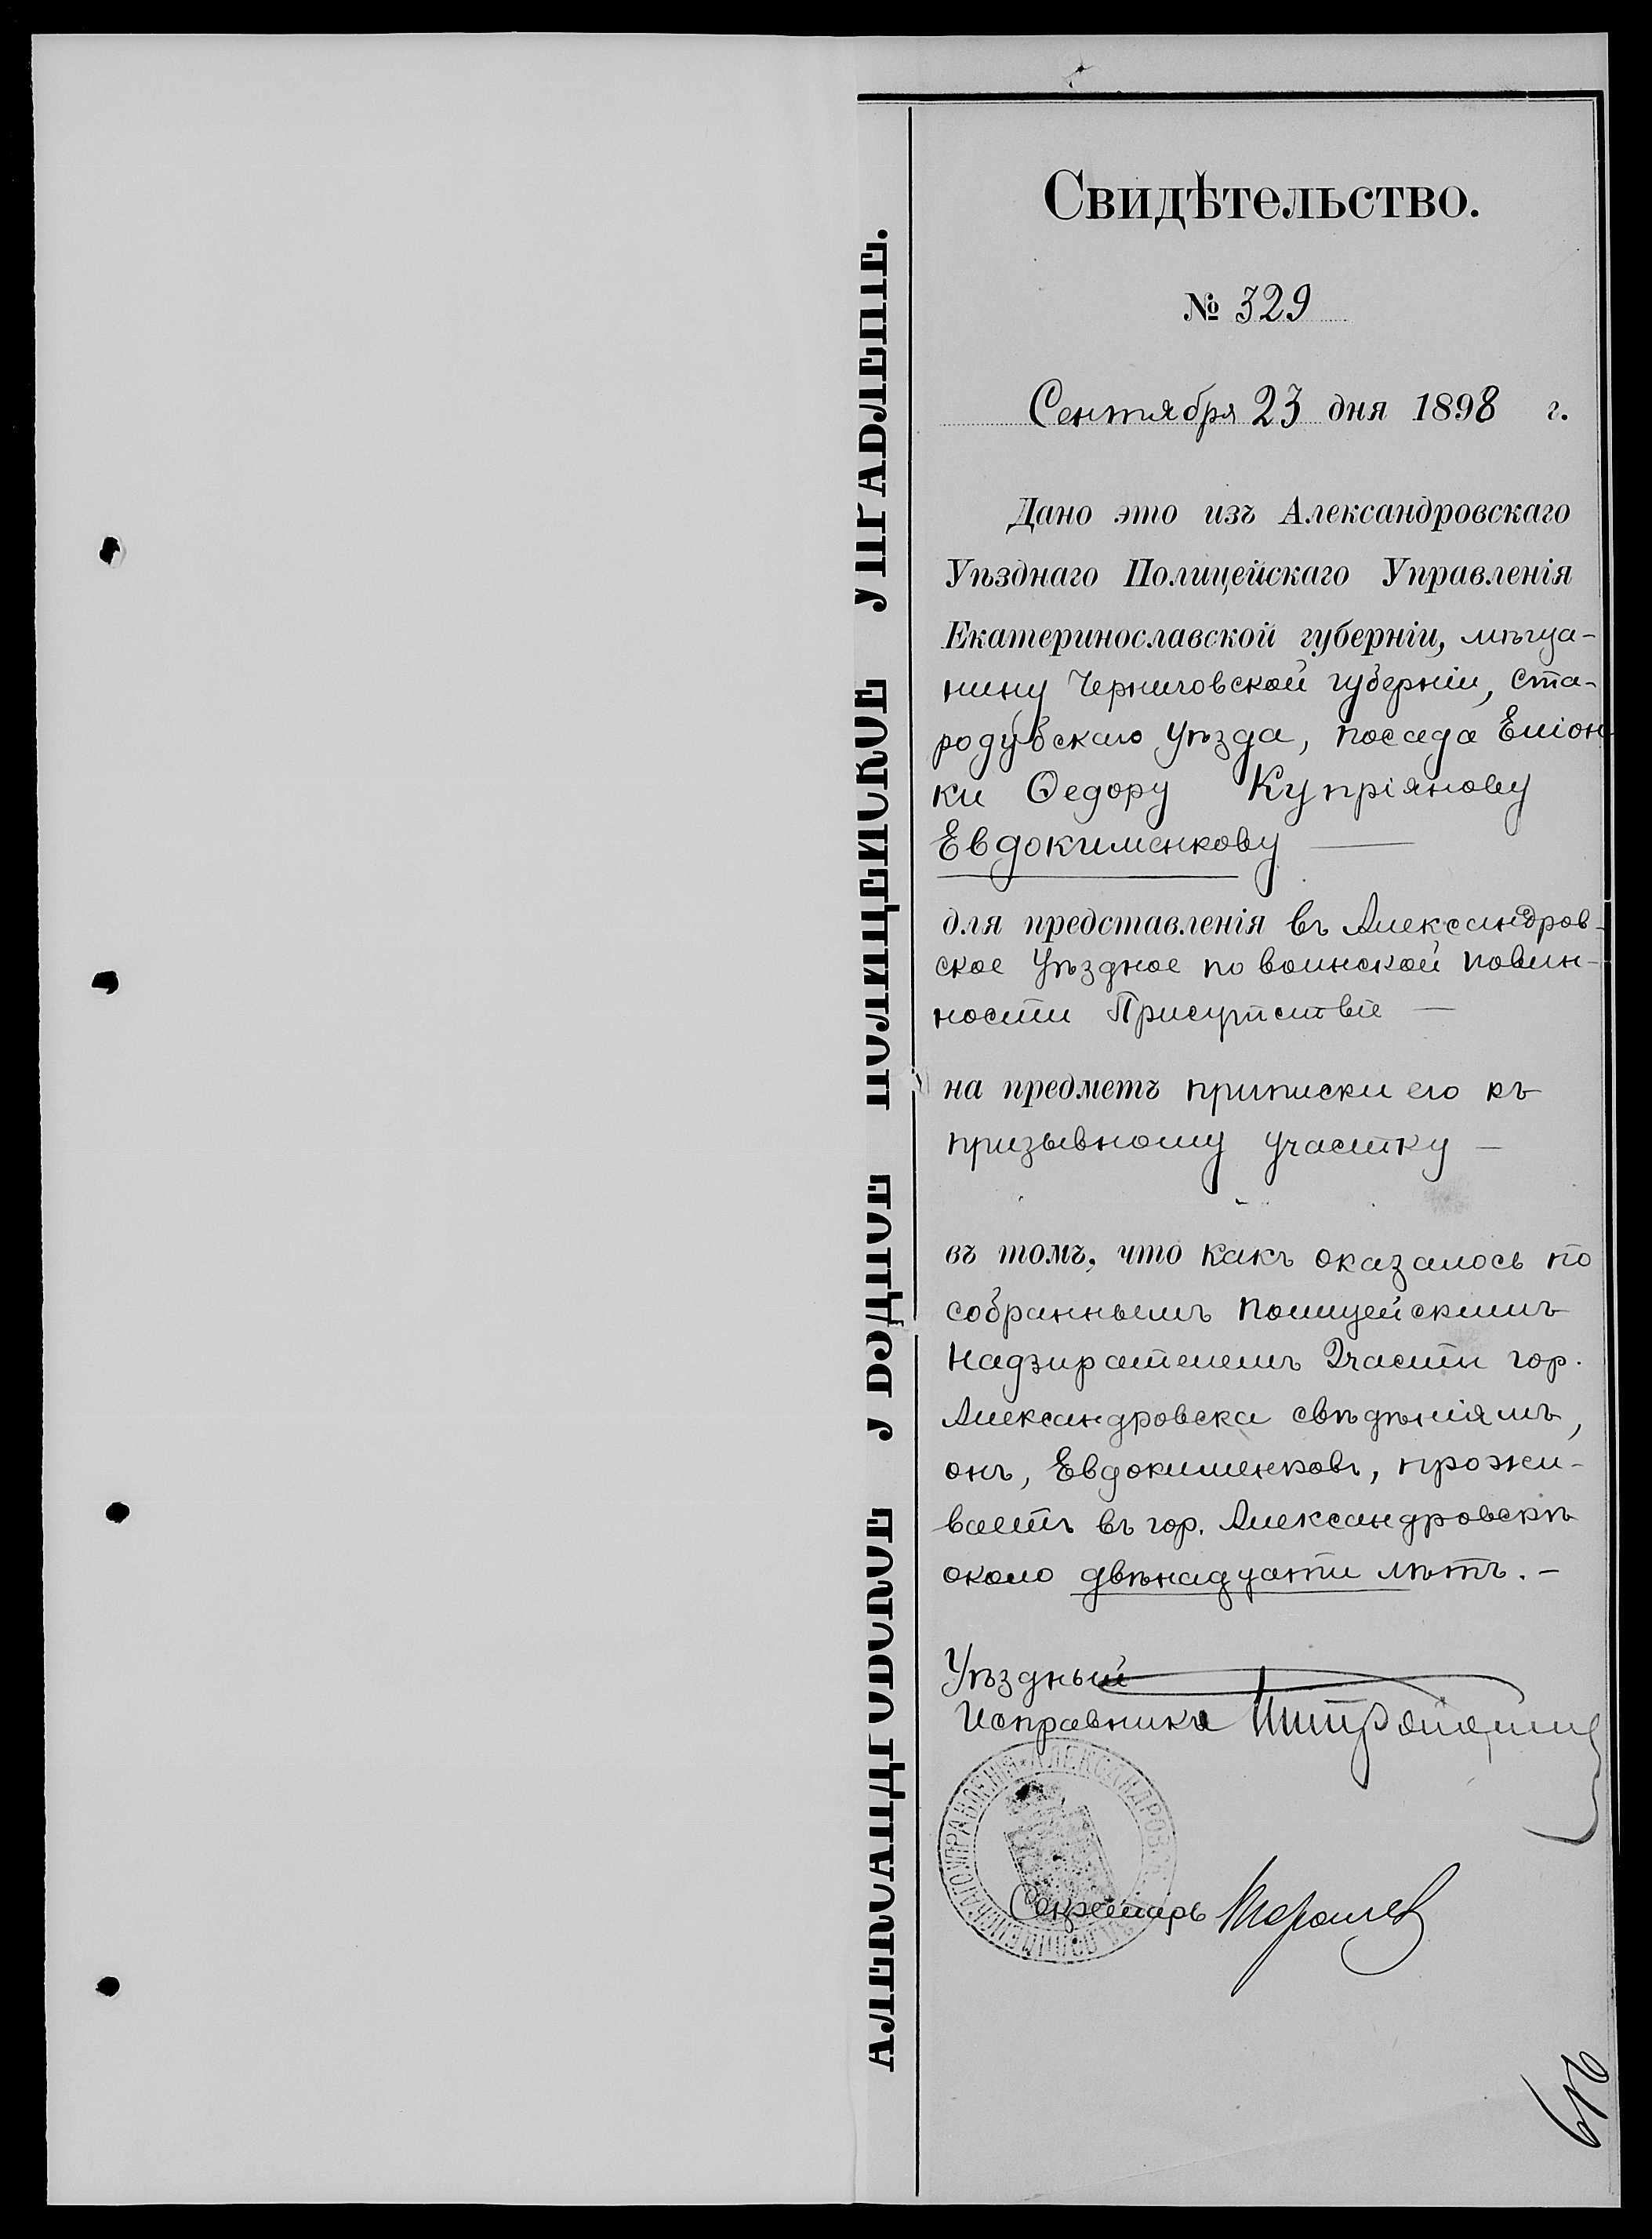 Свидѣтельство.
№ 329
Сентября 23 дня 1898 г.
Дано это изъ Александровскаго
Уѣзднаго Полицейскаго Управленія
Екатеринославской губерніи, мѣща-
нину Черниговской губерніи, Ста-
родубскаго уѣзда, посада Еліон
ки Ѳедору Купріянову
Евдокименкову —
для представленія въ Александров-
ское Уѣздное по воинской повин-
ности Присутствіе —
на предметъ приписки его къ
призывному участку —
въ томъ, что какъ оказалось по
собраннымъ Полицейскимъ
Надзирателемъ 2 части гор.
Александровска свѣдѣніямъ,
онъ, Евдокименковъ, прожи-
ваетъ въ гор. Александровскѣ
около двѣнадцати лѣтъ. —
Уѣздный
Исправникъ
Секретарь
АЛЕКСАНДРОВСКОЕ УѢЗДНОЕ ПОЛИЦЕЙСКОЕ УПРАВЛЕНІЕ.